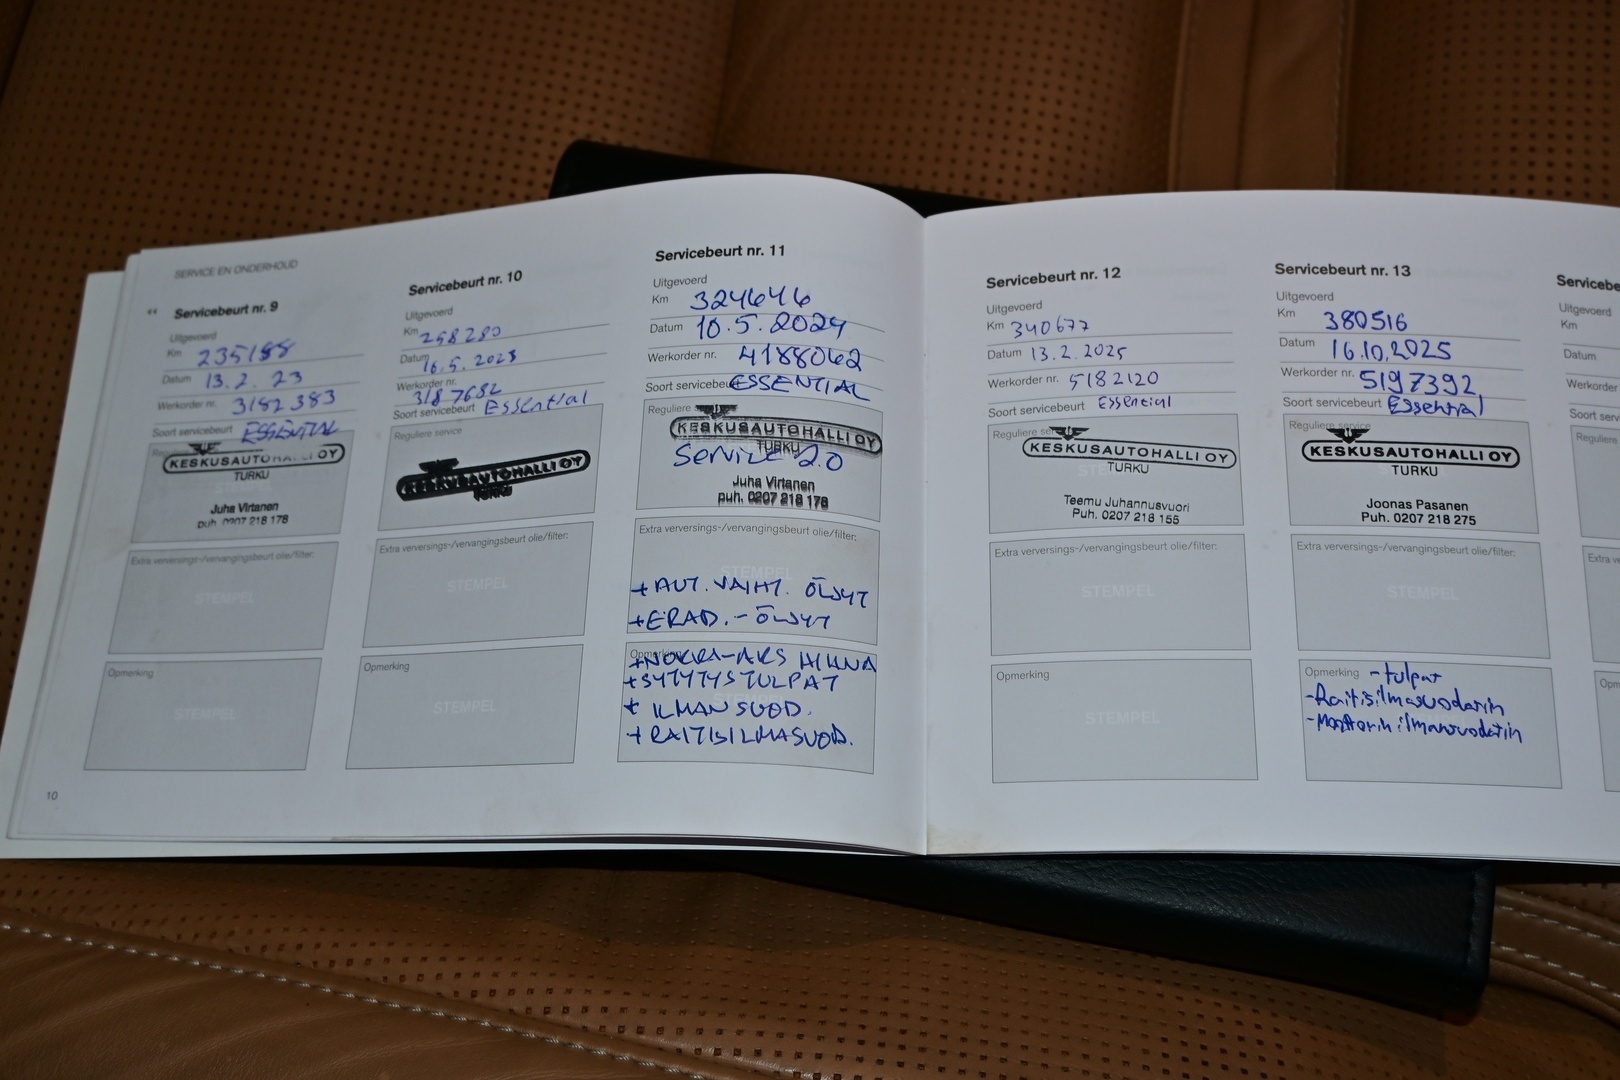 SERVICE EN ONDERHOUD
Servicebeurt nr. 9
Uitgevoerd
Km 235188
Datum 13.2.23
Werkorder nr. 3182383
Soort servicebeurt ESSENTIAL
KESKUSAUTOHALLI OY
TURKU
Juha Virtanen
puh. 0207 218 178
Extra verversings-/vervangingsbeurt olie/filter:
STEMPEL
Opmerking
STEMPEL
10
Servicebeurt nr. 10
Uitgevoerd
Km 258280
Datum 16.5.2023
Werkorder nr.
3187682
Soort servicebeurt Essential
Reguliere service
KESKUSAUTOHALLI OY
TURKU
Extra verversings-/vervangingsbeurt olie/filter:
STEMPEL
Opmerking
STEMPEL
Servicebeurt nr. 11
Uitgevoerd
Km 324646
Datum 10.5.2024
Werkorder nr. 4188062
Soort servicebeurt ESSENTIAL
Reguliere
KESKUSAUTOHALLI OY
TURKU
Service 2.0
Juha Virtanen
puh. 0207 218 178
Extra verversings-/vervangingsbeurt olie/filter:
STEMPEL
+ AUT. VAIHT. ÖLJYT
+ ERAD.-ÖLJYT
Opmerking
+ NOKKA-AKS HIHNA
+ SYTYTYSTULPAT
+ ILMANSUOD.
+ RAITISILMASUOD.
Servicebeurt nr. 12
Uitgevoerd
Km 340677
Datum 13.2.2025
Werkorder nr. 5182120
Soort servicebeurt Essential
Reguliere
KESKUSAUTOHALLI OY
TURKU
Teemu Juhannusvuori
Puh. 0207 218 155
Extra verversings-/vervangingsbeurt olie/filter:
STEMPEL
Opmerking
STEMPEL
Servicebeurt nr. 13
Uitgevoerd
Km 380516
Datum 16.10.2025
Werkorder nr. 5197392
Soort servicebeurt Essential
Reguliere service
KESKUSAUTOHALLI OY
TURKU
Joonas Pasanen
Puh. 0207 218 275
Extra verversings-/vervangingsbeurt olie/filter:
STEMPEL
Opmerking - tulpat
- Raitisilmasuodatin
- Moottorin ilmansuodatin
Servicebe
Uitgevoerd
Km
Datum
Werkorder
Soort serv
Reguliere
Extra ve
Opm